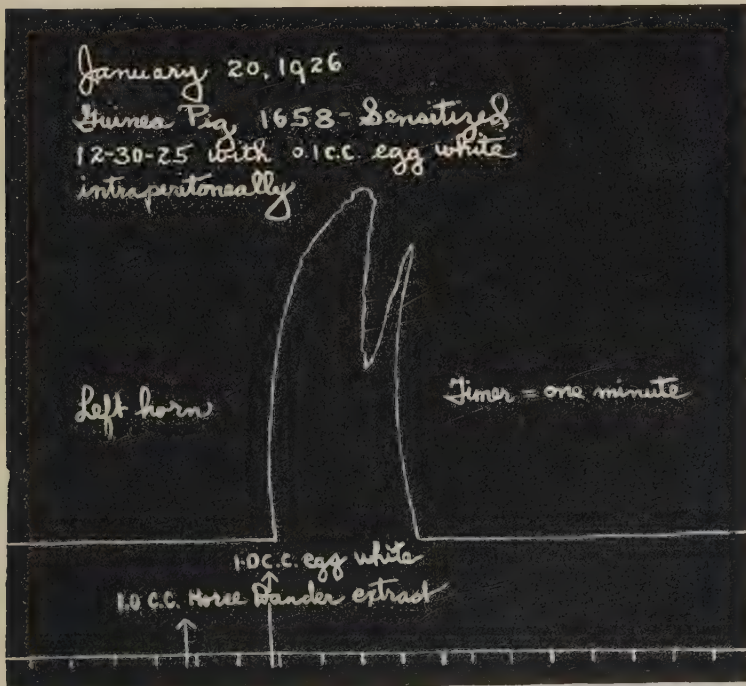 January 20, 1926
Guinea Pig, 1658 - Sensitized
12-30-25 with 0.1 C.C. egg white
intraperitoneally
Left horn
Timer = one minute
1.0 C.C. egg white
1.0 C.C. Horse Dander extract